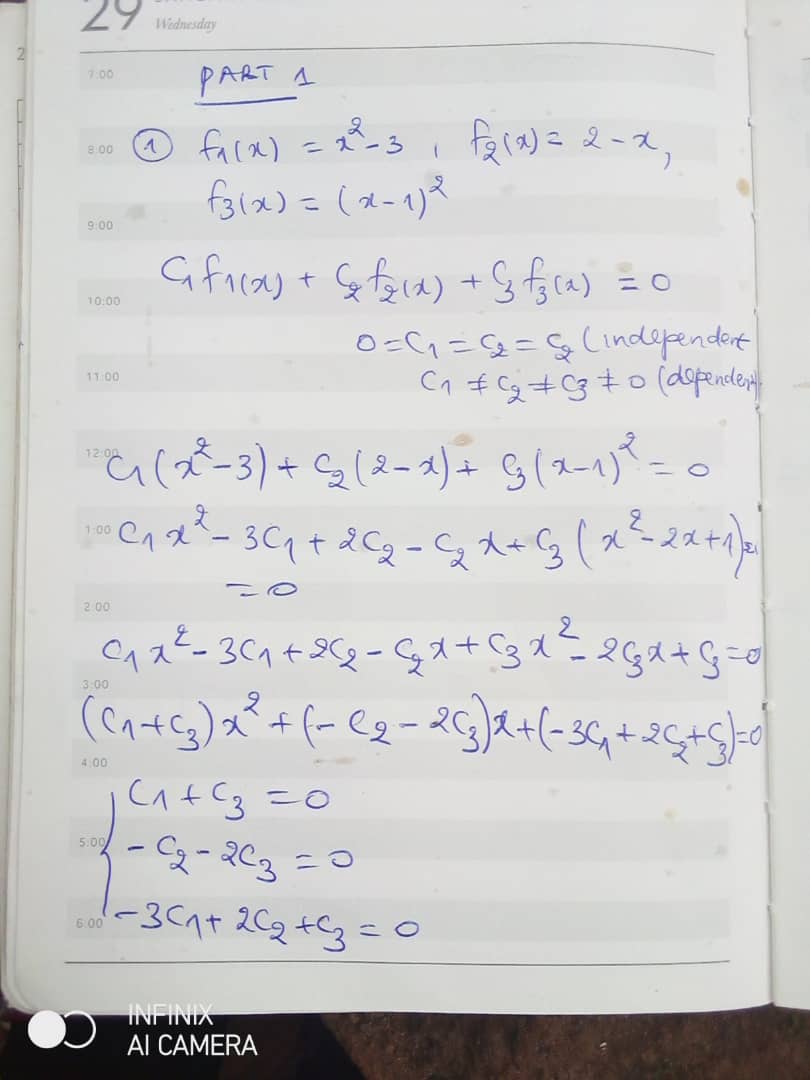 29
Wednesday
7:00
PART 1
8:00 ① f₁(x) = x² - 3 , f₂(x) = 2 - x,
f₃(x) = (x - 1)²
9:00
C₁f₁(x) + C₂f₂(x) + C₃f₃(x) = 0
10:00
0 = C₁ = C₂ = C₂ (independent
11:00
C₁ ≠ C₂ ≠ C₃ ≠ 0 (dependent)
12:00
C₁(x² - 3) + C₂(2 - x) + C₃(x - 1)² = 0
1:00 C₁x² - 3C₁ + 2C₂ - C₂x + C₃(x² - 2x + 1)
= 0
2:00
C₁x² - 3C₁ + 2C₂ - C₂x + C₃x² - 2C₃x + C₃ = 0
3:00
(C₁ + C₃)x² + (-C₂ - 2C₃)x + (-3C₁ + 2C₂ + C₃) = 0
4:00
{ C₁ + C₃ = 0
5:00 - C₂ - 2C₃ = 0
6:00 -3C₁ + 2C₂ + C₃ = 0
INFINIX
AI CAMERA